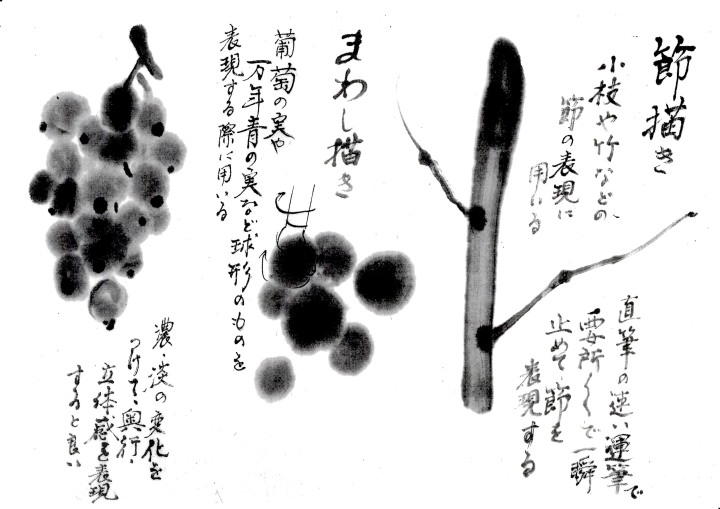 節描き
小枝や竹などの、
節の表現に
用いる
直筆の速い運筆で
要所〱で一瞬
止めて節を
表現する
まわし描き
葡萄の実や
万年青の実など球形のものを
表現する際に用いる
濃・淡の変化を
つけて、奥行・
立体感を表現
すると良い